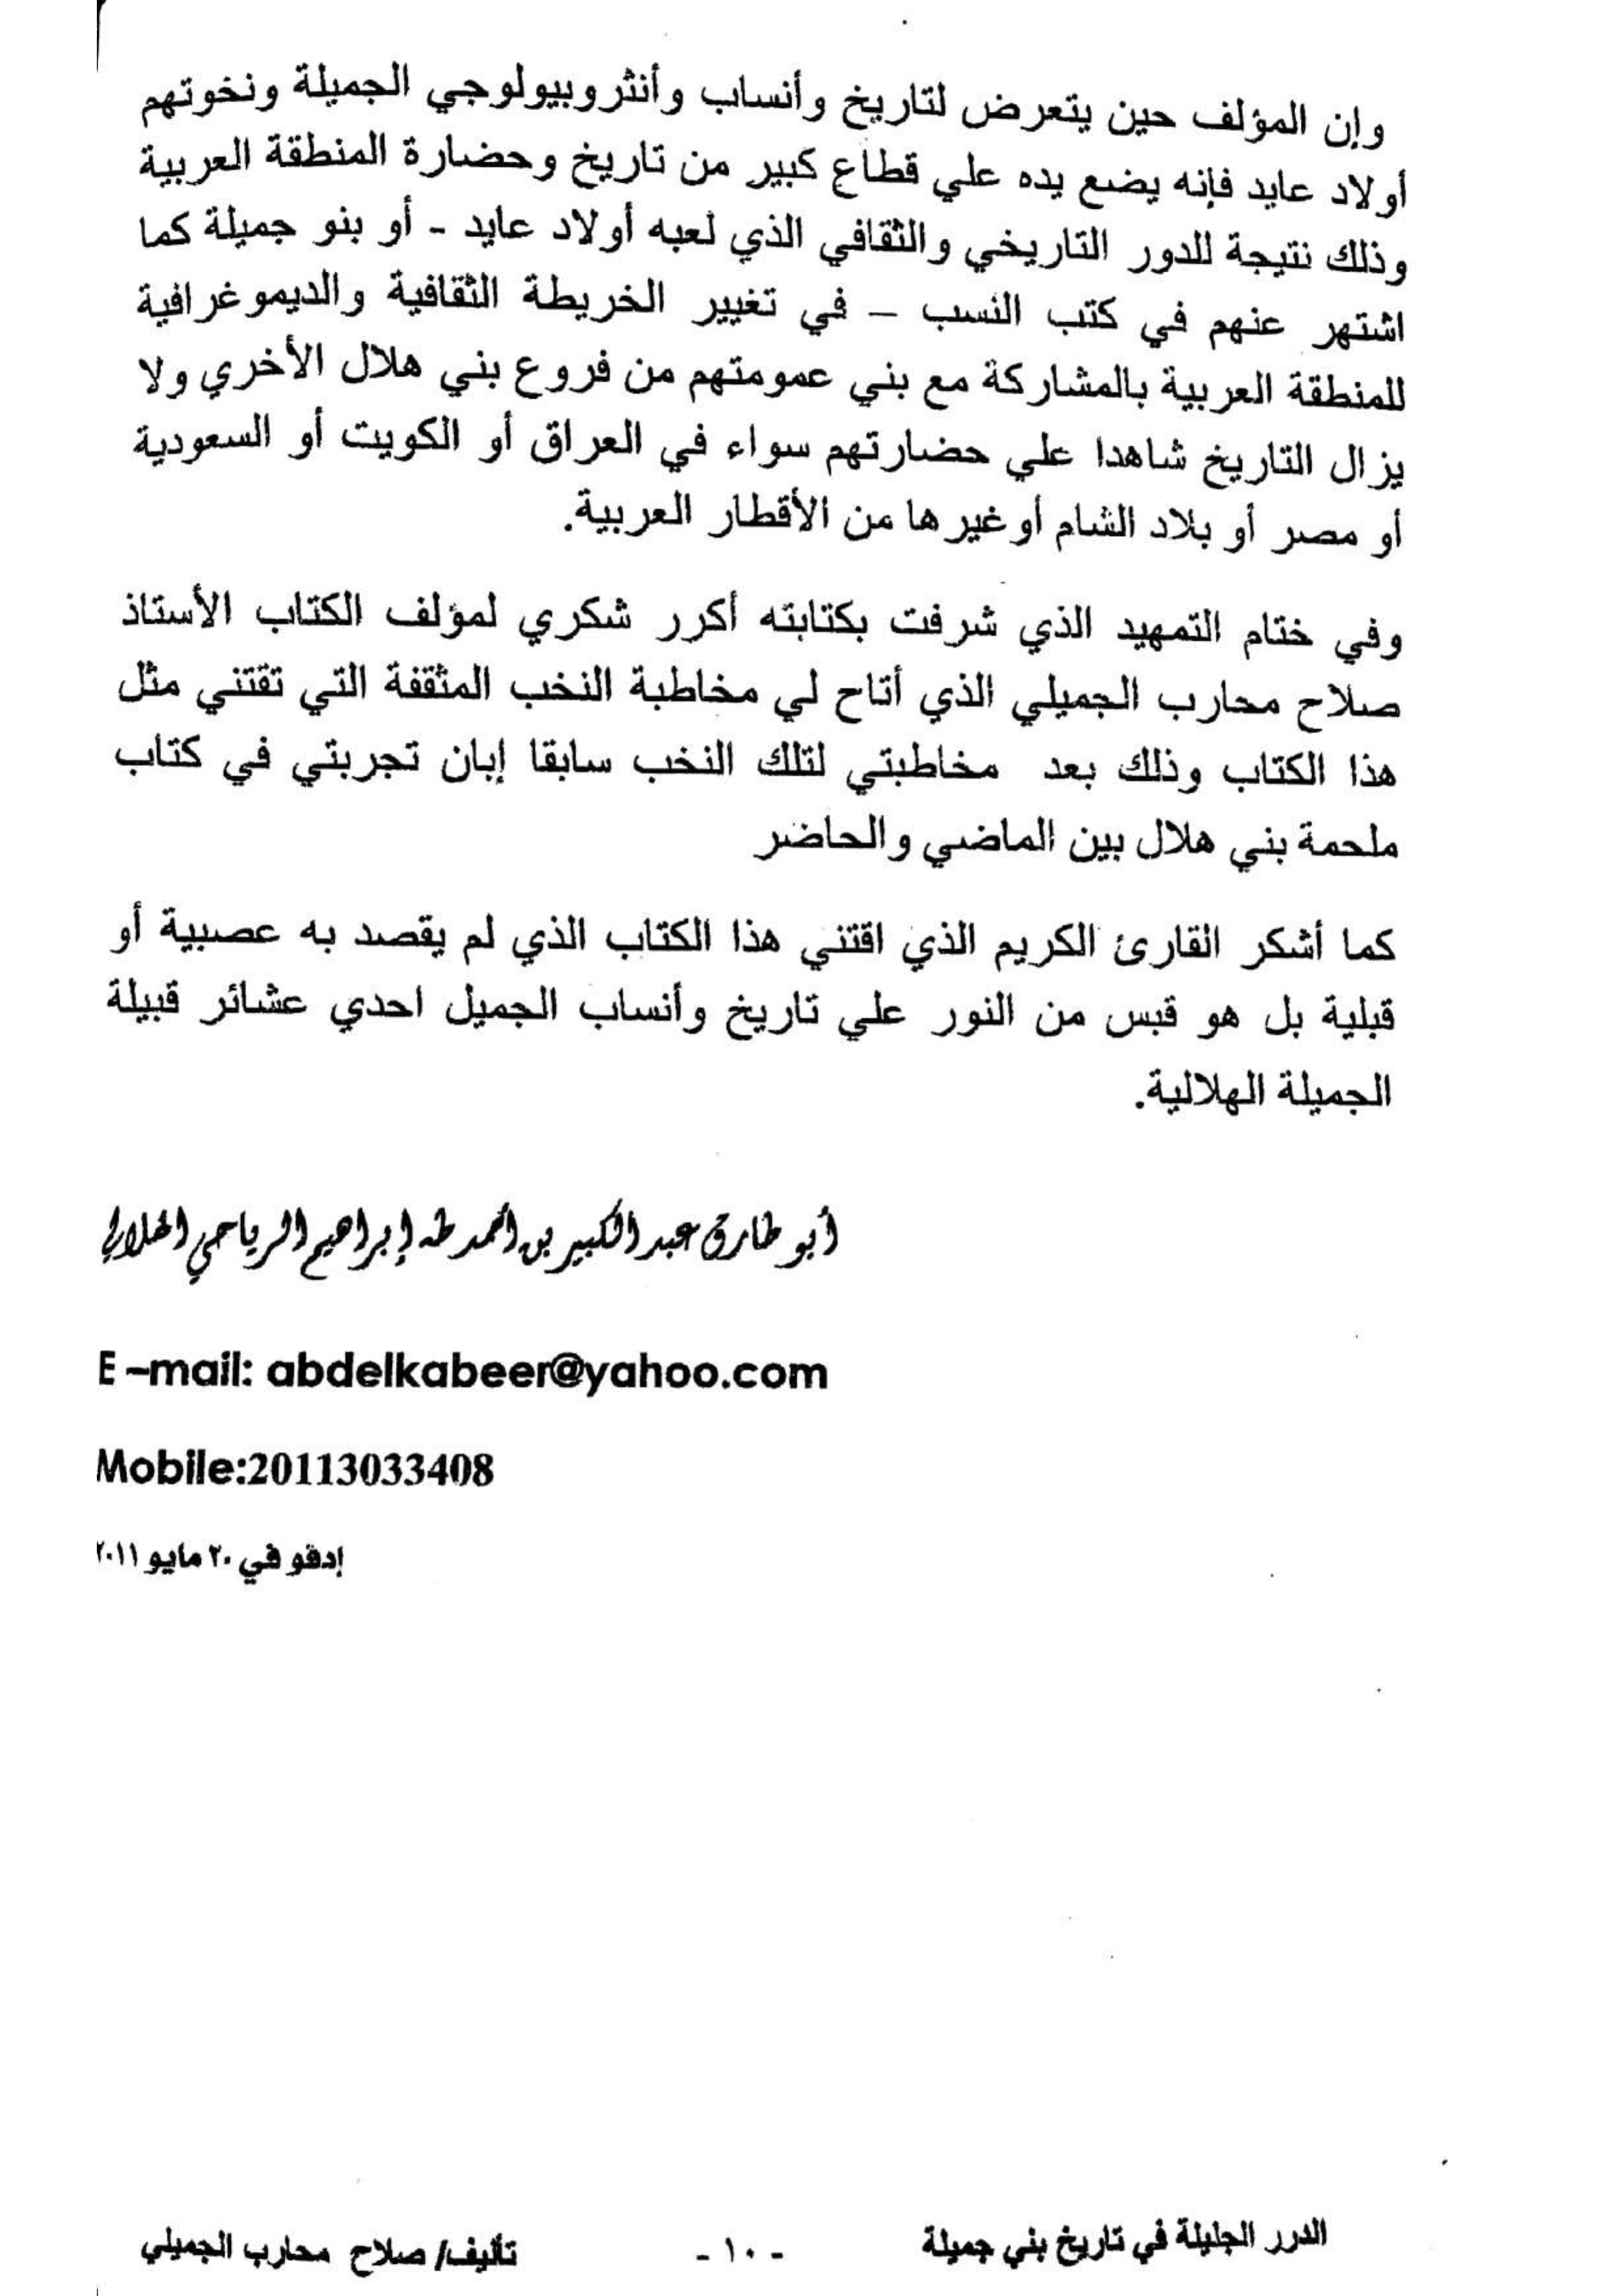 وإن المؤلف حين يتعرض لتاريخ وأنساب وأنثروبيولوجي الجميلة ونخوتهم
أولاد عايد فإنه يضع يده علي قطاع كبير من تاريخ وحضارة المنطقة العربية
وذلك نتيجة للدور التاريخي والثقافي الذي لعبه أولاد عايد - أو بنو جميلة كما
اشتهر عنهم في كتب النسب – في تغيير الخريطة الثقافية والديموغرافية
للمنطقة العربية بالمشاركة مع بني عمومتهم من فروع بني هلال الأخري ولا
يزال التاريخ شاهدا علي حضارتهم سواء في العراق أو الكويت أو السعودية
أو مصر أو بلاد الشام أو غيرها من الأقطار العربية.
وفي ختام التمهيد الذي شرفت بكتابته أكرر شكري لمؤلف الكتاب الأستاذ
صلاح محارب الجميلي الذي أتاح لي مخاطبة النخب المثقفة التي تقتني مثل
هذا الكتاب وذلك بعد مخاطبتي لتلك النخب سابقا إبان تجربتي في كتاب
ملحمة بني هلال بين الماضي والحاضر
كما أشكر القارئ الكريم الذي اقتني هذا الكتاب الذي لم يقصد به عصبية أو
قبلية بل هو قبس من النور علي تاريخ وأنساب الجميل احدي عشائر قبيلة
الجميلة الهلالية.
أبو طارق عبد الكبير بن أحمد طه إبراهيم الرياحي الهلالي
E –mail: abdelkabeer@yahoo.com
Mobile:20113033408
إدفو في ٢٠ مايو ٢٠١١
الدرر الجليلة في تاريخ بني جميلة - ١٠ - تأليف/ صلاح محارب الجميلي